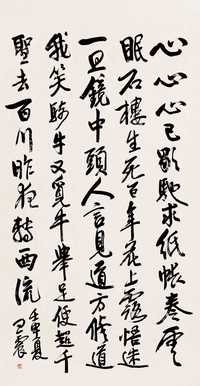 心心心已歇馳求紙帳卷雲
眠石樓生死百年花上露悟迷
一旦鏡中頭人言見道方修道
我笑騎牛又覓牛舉足便超千
聖去百川昨夜轉西流
夏
震